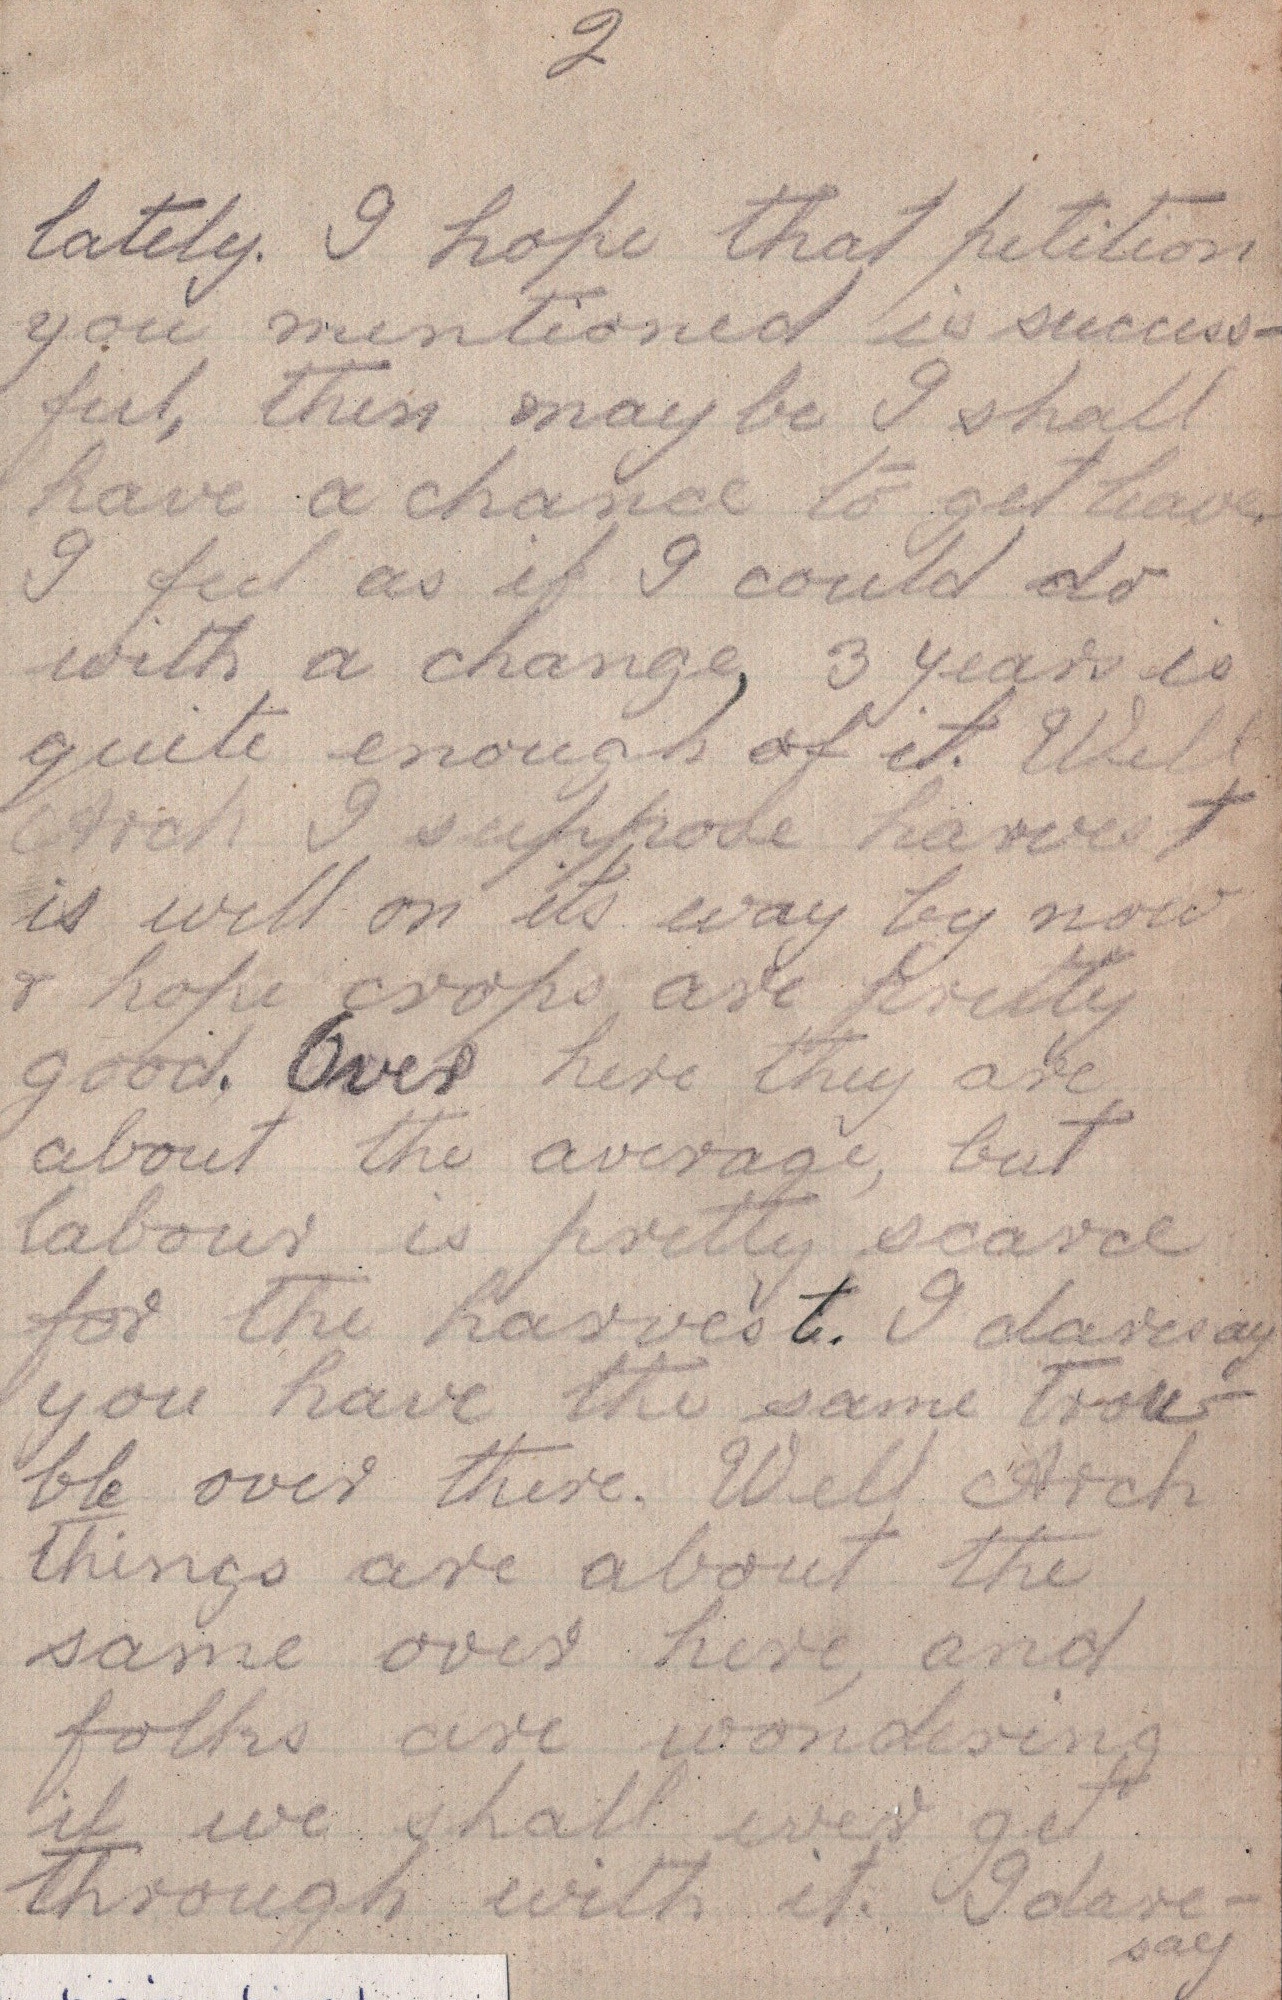 2
lately. I hope that petition
you mentioned is success-
ful, then may be I shall
have a chance to get leave.
I feel as if I could do
with a change, 3 years is
quite enough of it. Well
Arch I suppose harvest
is well on its way by now
& hope crops are pretty
good. Over here they are
about the average, but
labour is pretty scarce
for the harvest. I daresay
you have the same trou-
ble over there. Well Arch
things are about the
same over here, and
folks are wondering
if we shall ever get
through with it. I dare-
say